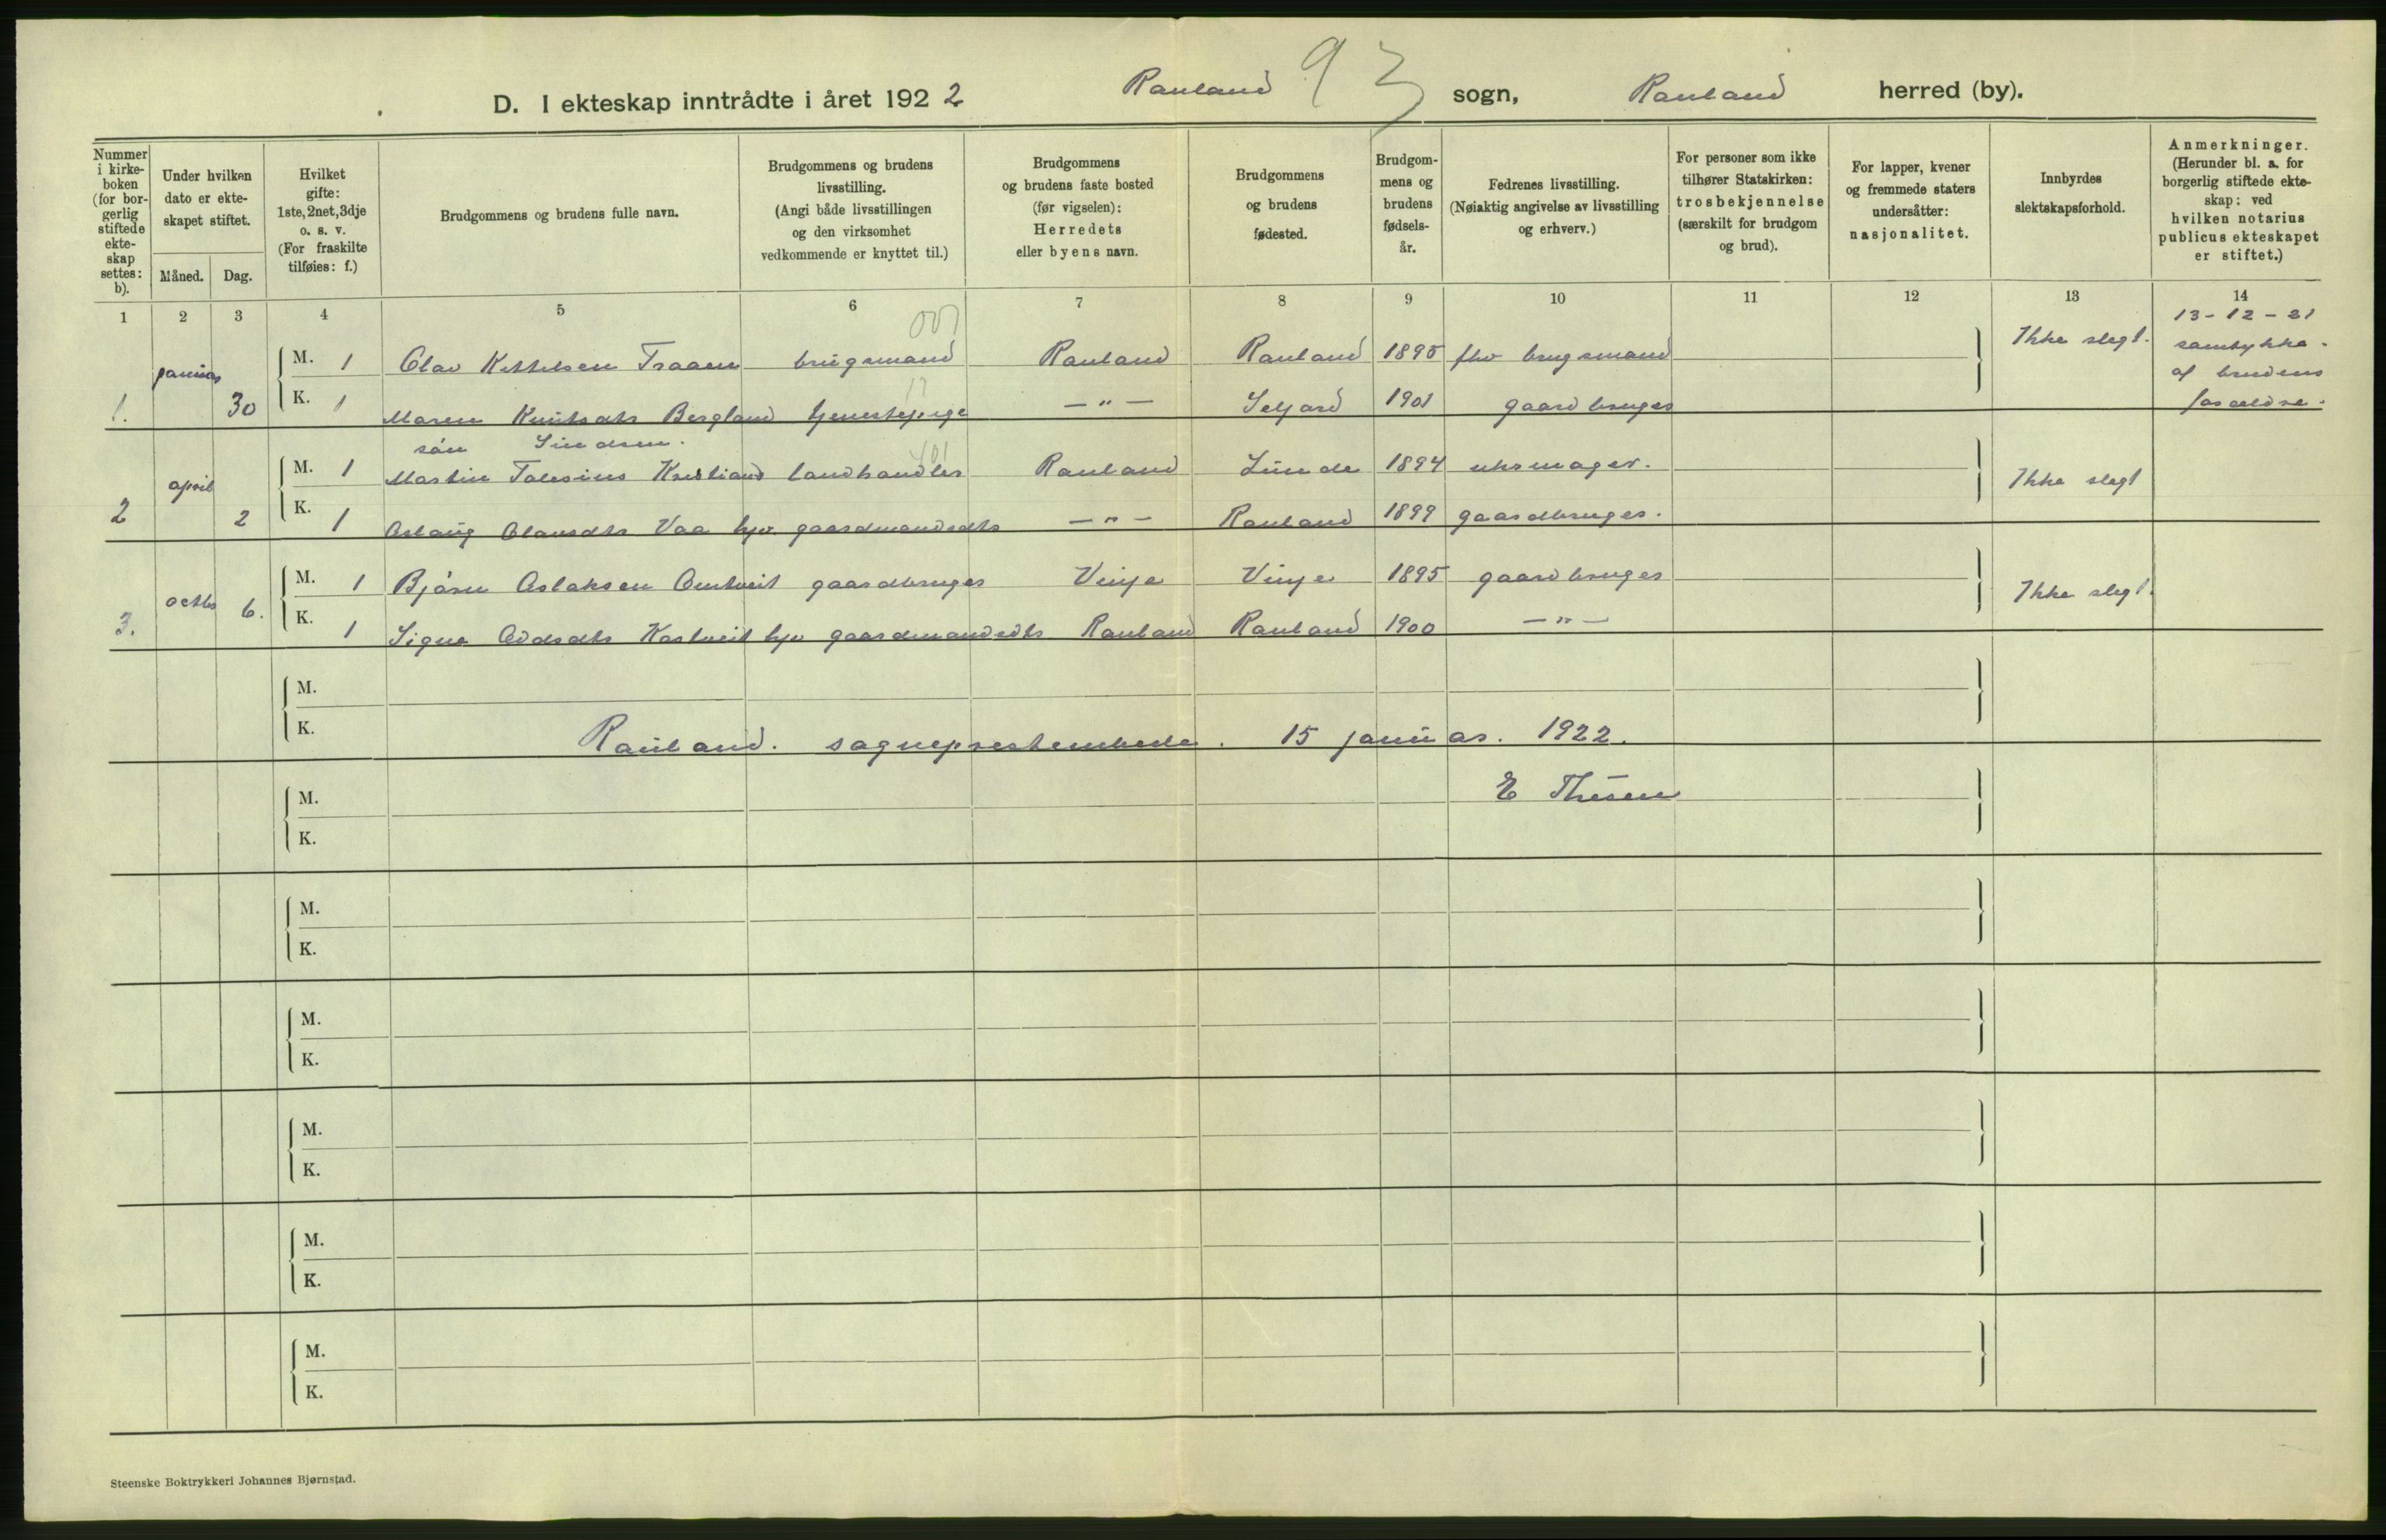 93
D. I ekteskap inntrådte i året 1922 Rauland sogn, Rauland herred (by).
Nummer i kirkeboken (for borgerlig stiftede ekteskap settes: b).
Under hvilken dato er ekteskapet stiftet.
Måned. Dag.
Hvilket gifte: 1ste, 2net, 3dje o. s. v. (For fraskilte tilføies: f.)
Brudgommens og brudens fulle navn.
Brudgommens og brudens livsstilling. (Angi både livsstillingen og den virksomhet vedkommende er knyttet til.)
Brudgommens og brudens faste bosted (før vigselen): Herredets eller byens navn.
Brudgommens og brudens fødested.
Brudgommens og brudens fødselsår.
Fedrenes livsstilling. (Nøiaktig angivelse av livsstilling og erhverv.)
For personer som ikke tilhører Statskirken: trosbekjennelse (særskilt for brudgom og brud).
For lapper, kvener og fremmede staters undersåtter: nasjonalitet.
Innbyrdes slektskapsforhold.
Anmerkninger. (Herunder bl. a. for borgerlig stiftede ekteskap: ved hvilken notarius publicus ekteskapet er stiftet.)
1 2 3 4 5 6 7 8 9 10 11 12 13 14
1. januar 30
M. 1 Olav Kettelsen Traaen brugsmand Rauland Rauland 1895 fhv brugsmand Ikke slegt. 13-12-21 samtykke af brudens foraeldre.
K. 1 Maren Knutsdtr Bergland tjenestepige —"— Seljord 1901 gaardbruger
søn Simonsen.
2 april 2
M. 1 Martin Talesius Kristians landhandler Rauland Lunde 1894 uhrmager. Ikke slegt
K. 1 Aslaug Olavsdtr Vaa hjv. gaardmandsdtr —"— Rauland 1899 gaardbruger.
3. octbr 6.
M. 1 Bjørn Aslaksen Omtveit gaardbruger Vinje Vinje 1895 gaardbruger Ikke slegt.
K. 1 Signe Oddsdtr Kostveit hjv gaardmandsdtr Rauland Rauland 1900 —"—
M.
K.
Rauland. sogneprestembede. 15 januar. 1922.
E Thesen
M.
K.
M.
K.
M.
K.
M.
K.
M.
K.
M.
K.
Steenske Boktrykkeri Johannes Bjørnstad.